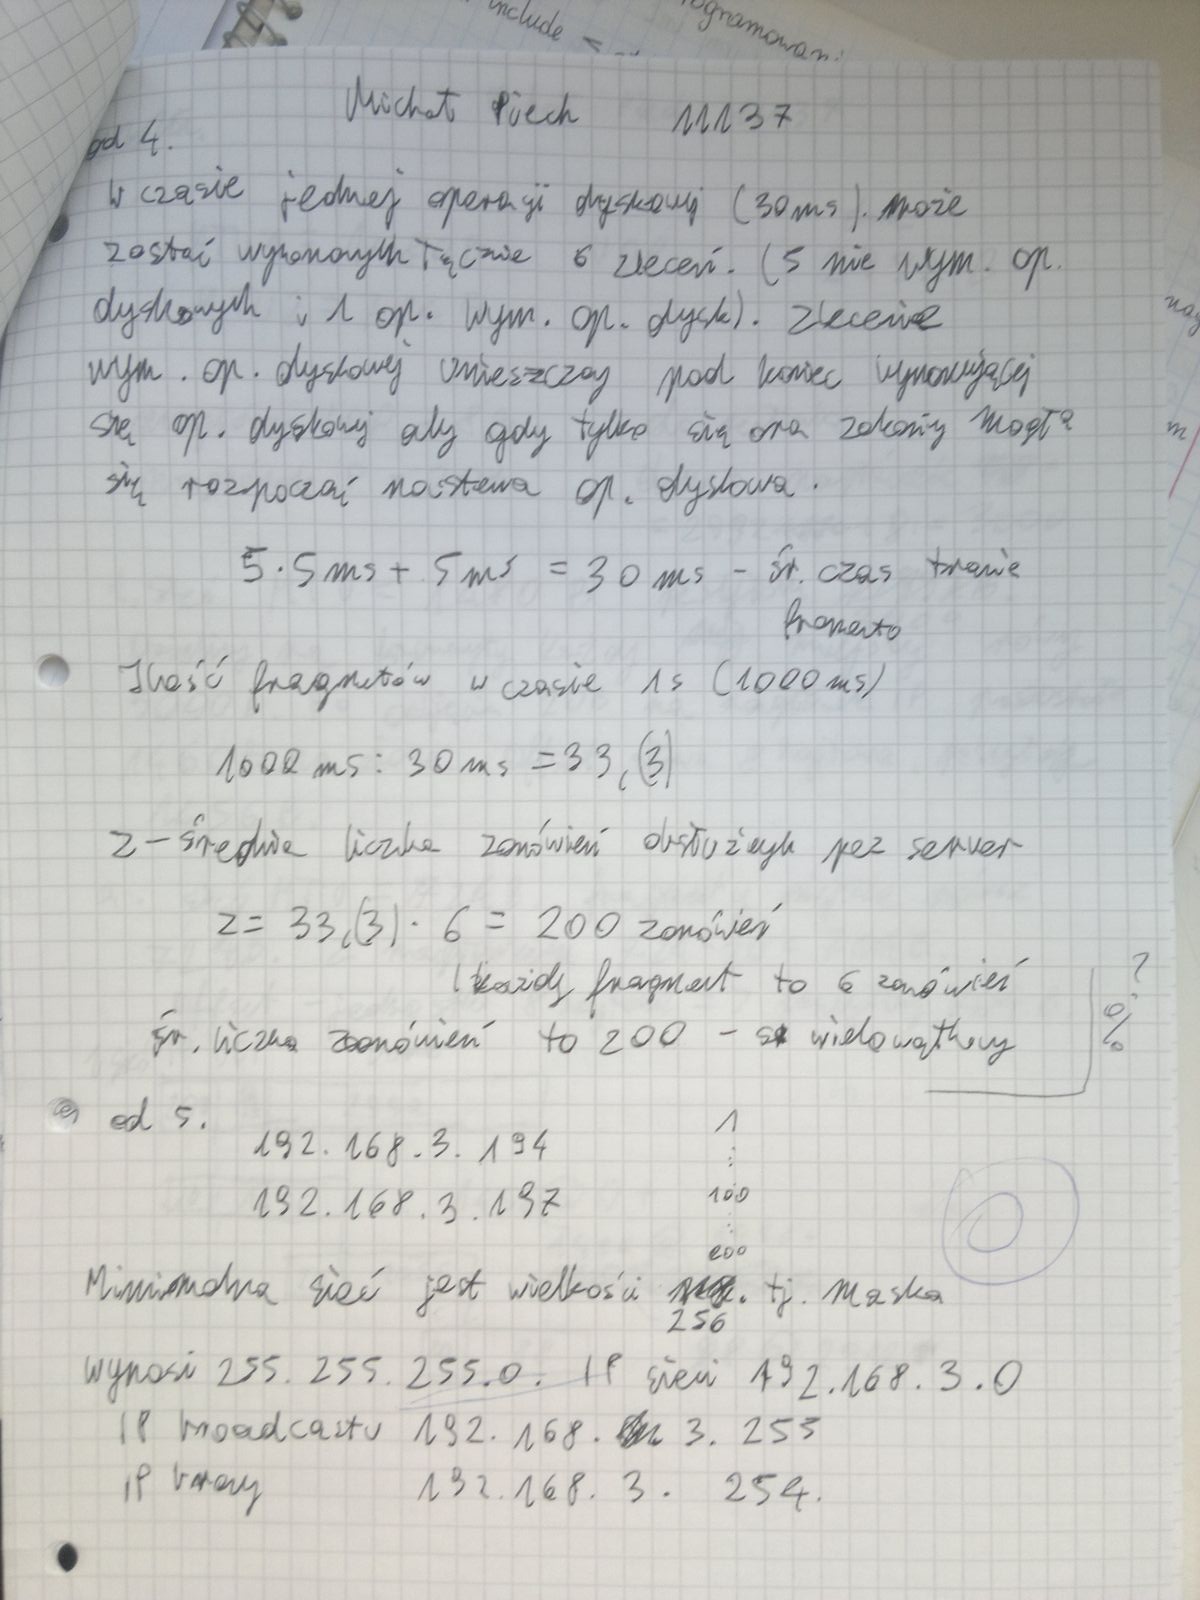 include <
ogramowani
Michał Piech 11137
ad 4.
w czasie jednej operacji dyskowej (30ms). może
zostać wykonanych łącznie 6 zleceń. (5 nie wym. op.
dyskowych i 1 op. wym. op. dysk). Zlecenie
wym. op. dyskowej umieszczay pod koniec wykonującej
się op. dyskowej aby gdy tylko się ona zakończy mogła
się rozpocząć op. dyskowa.
5·5ms + 5ms = 30ms - śr. czas trwanie
Ilość fragmetów w czasie 1s (1000ms)
1000 ms : 30 ms = 33,(3)
z - średnia liczba zamówień pez server
z = 33,(3) · 6 = 200 zamówień
każdy fragment to 6 zamówień
śr. liczba zamówień to 200 - wielowątkowy
?
%
ad 5.
192.168.3.194
192.168.3.197
1
⋮
100
⋮
200
0
Minimalna sieć jest wielkości tj. Maska
256
wynosi 255.255.255.0. IP sieci 192.168.3.0
IP broadcastu 192.168. 3. 255
IP bramy 192.168.3. 254.